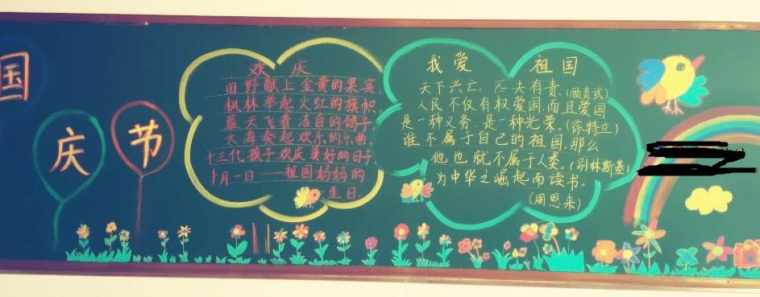 国
庆
节
欢 庆
田野献上金黄的果实
枫林举起火红的旗帜
蓝天飞着洁白的鸽子
大海奏起欢乐的乐曲
十三亿孩子欢庆美好的日子
十月一日——祖国妈妈的
生日
我 爱 祖 国
天下兴亡,匹夫有责(顾炎武)
人民不仅有权爱国而且爱国
是一种义务,是一种光荣。(徐特立)
谁不属于自己的祖国,那么
他也就不属于人类。(别林斯基)
为中华之崛起而读书。
(周恩来)